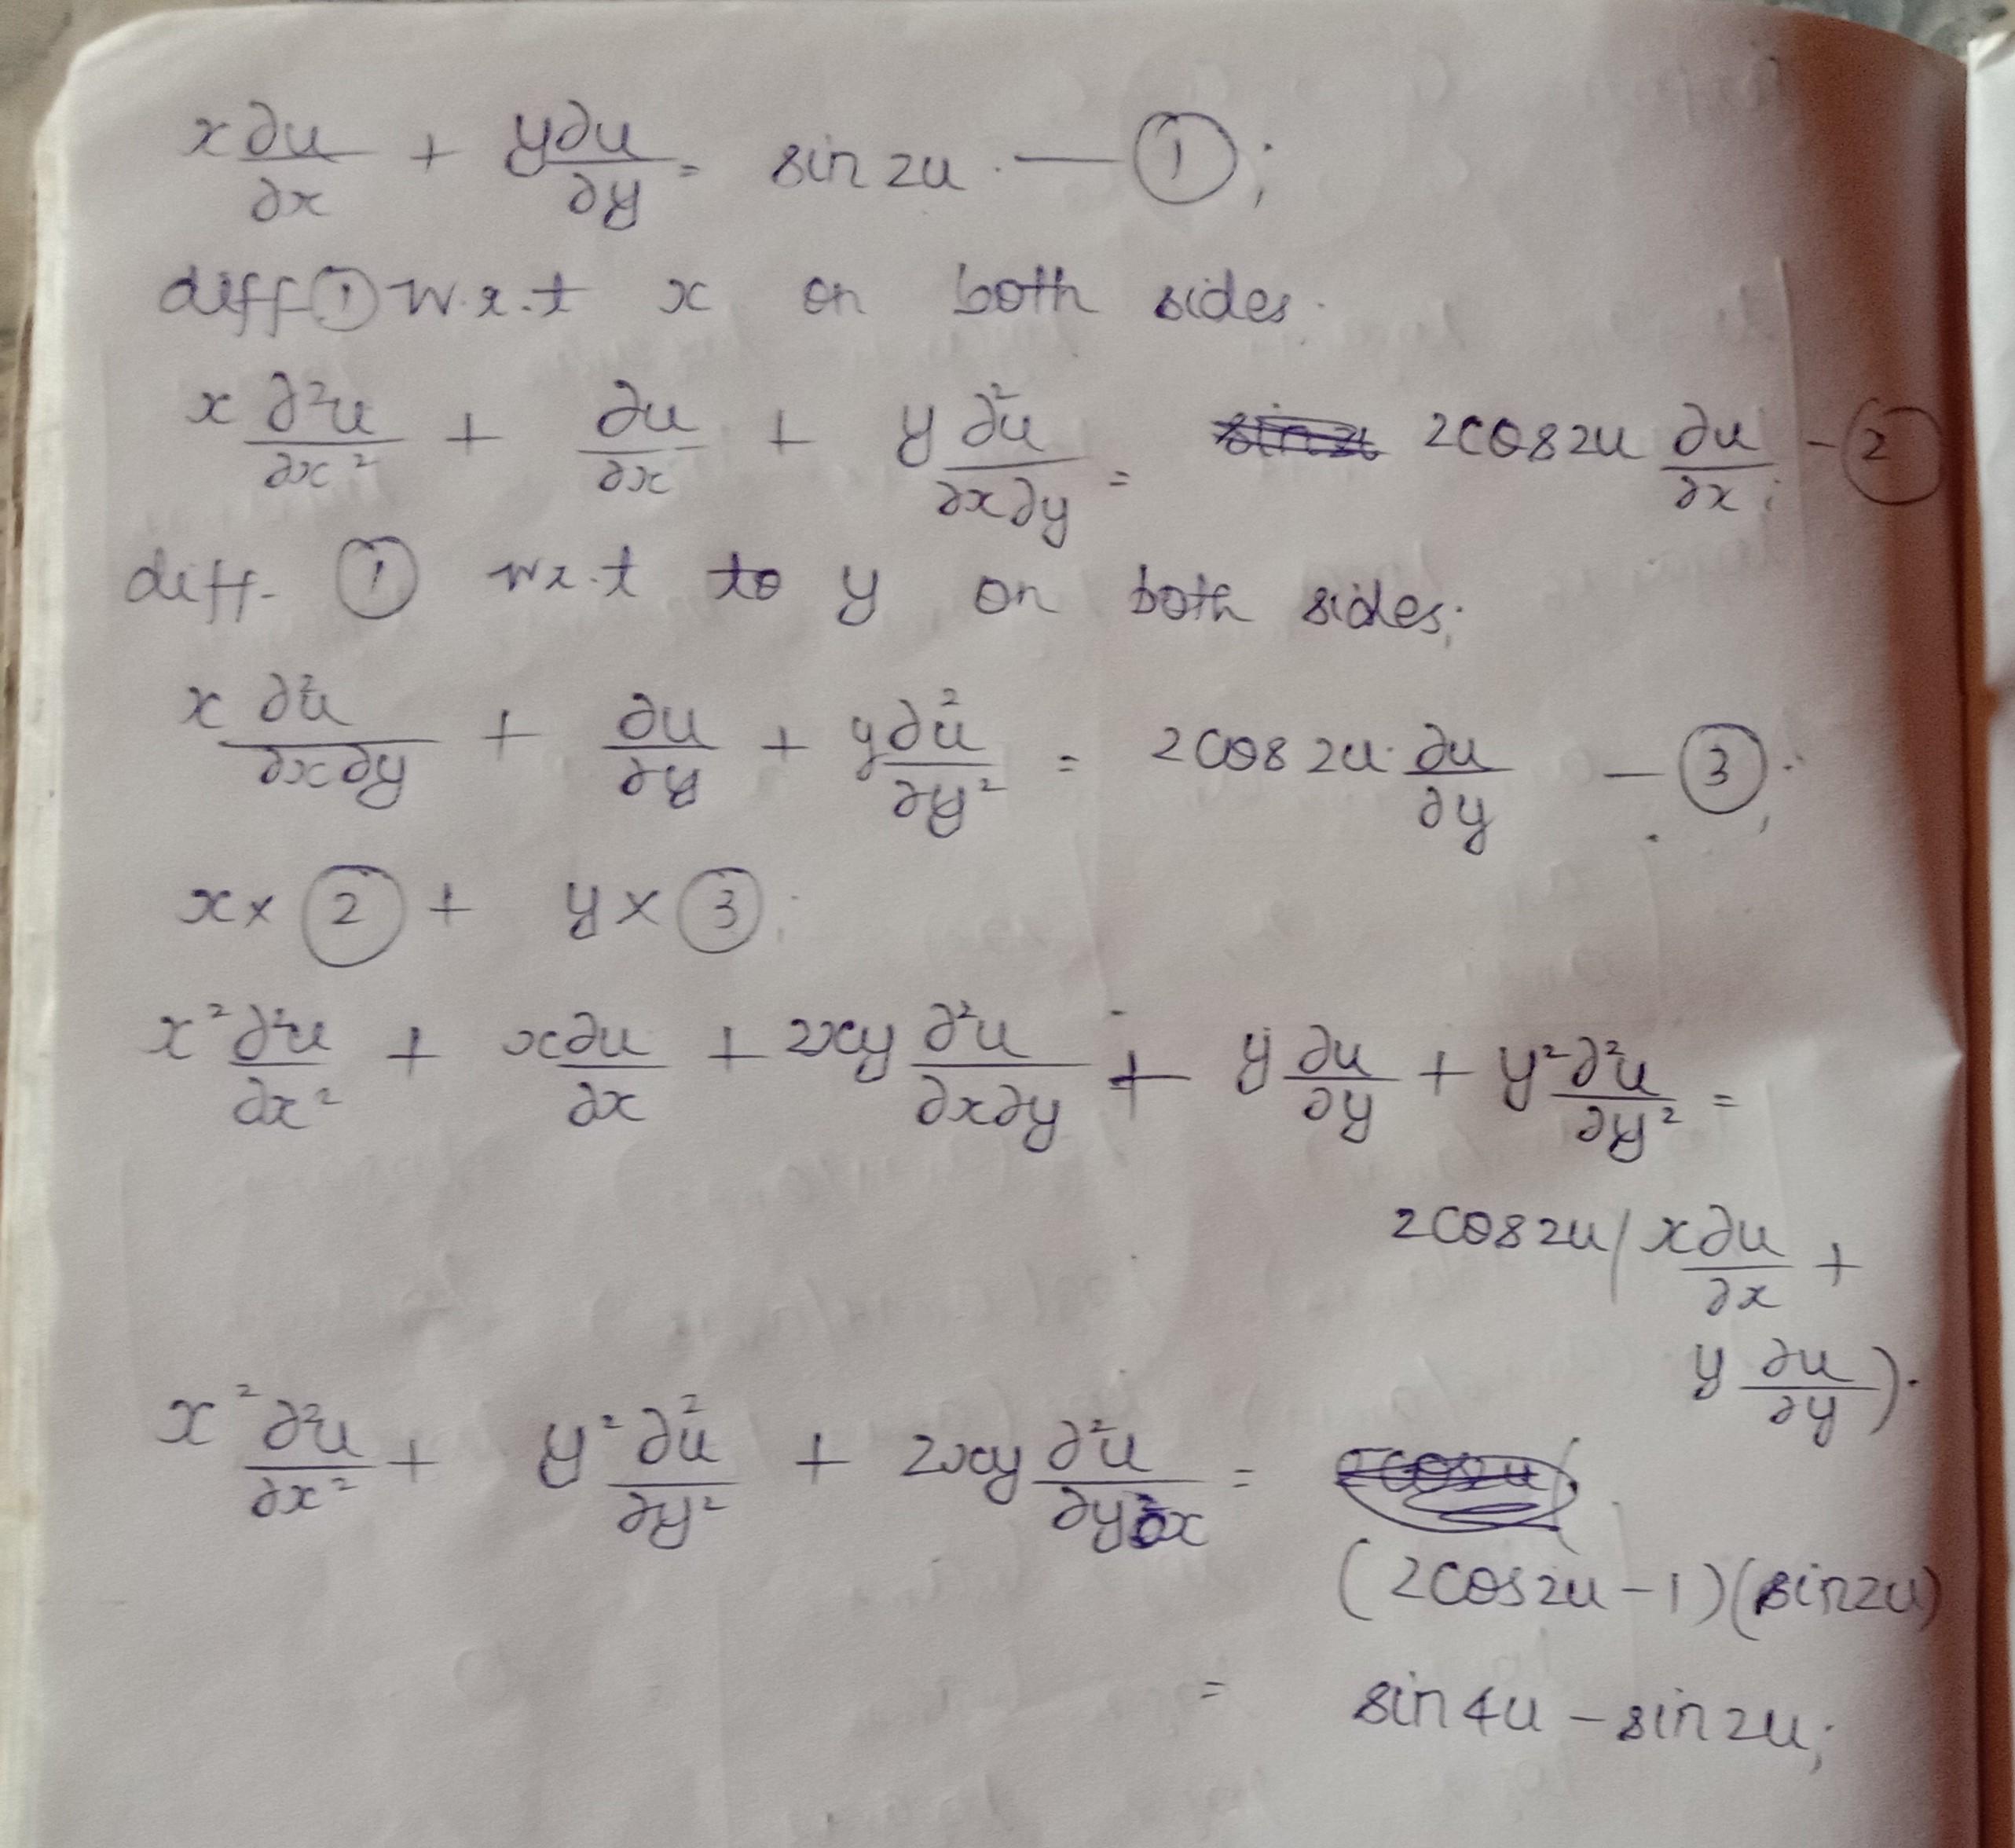 x ∂u/∂x + y∂u/∂y = sin 2u. — ①;
diff ① w.r.t x on both sides.
x ∂²u/∂x² + ∂u/∂x + y ∂²u/∂x∂y = 2cos2u ∂u/∂x; – ②
diff. ① w.r.t to y on both sides;
x ∂²u/∂x∂y + ∂u/∂y + y∂²u/∂y² = 2cos2u. ∂u/∂y – ③;
x× ② + y× ③;
x² ∂²u/∂x² + x∂u/∂x + 2xy ∂²u/∂x∂y + y ∂u/∂y + y² ∂²u/∂y² =
2cos2u (x∂u/∂x +
y ∂u/∂y).
x² ∂²u/∂x² + y² ∂²u/∂y² + 2xy ∂²u/∂y∂x =
(2cos2u – 1)(sin2u)
= sin4u – sin2u;